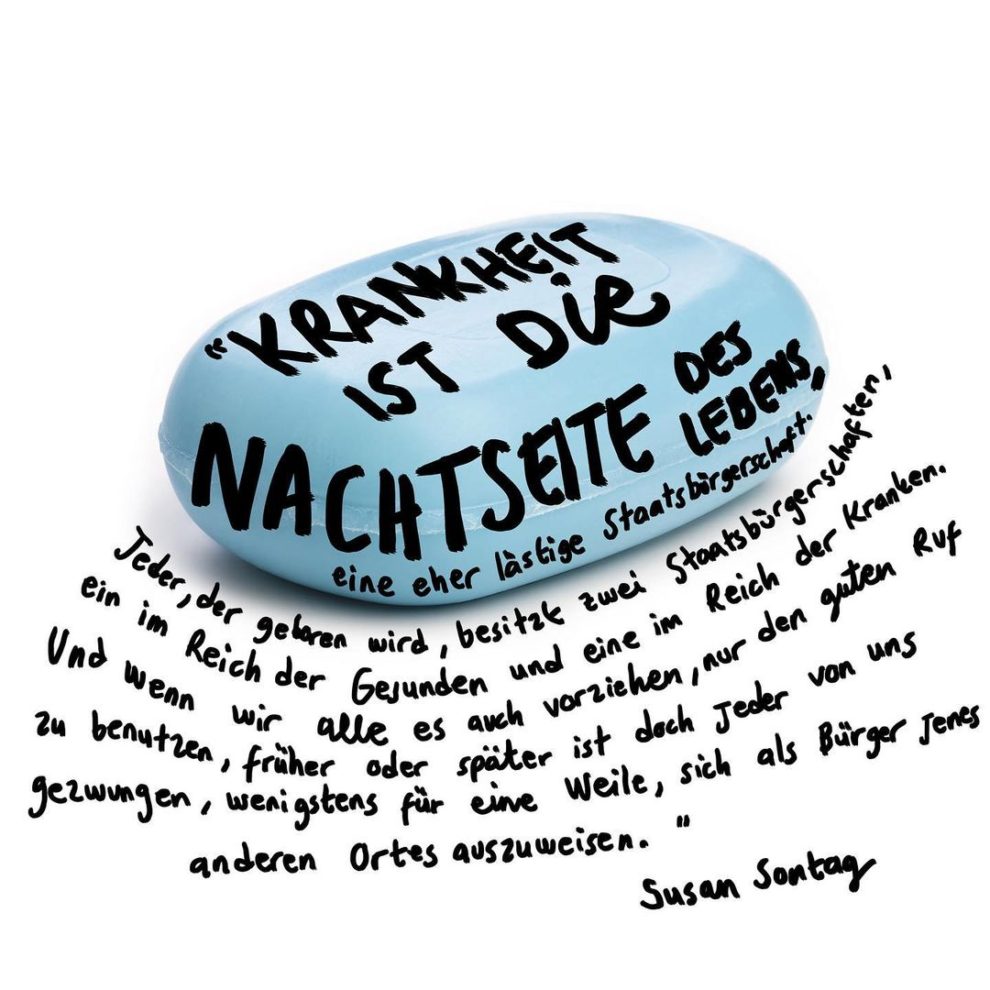 "KRANKHEIT
IST DIE
NACHTSEITE DES
LEBENS,
eine eher lästige Staatsbürgerschaft.
Jeder, der geboren wird, besitzt zwei Staatsbürgerschaften,
ein im Reich der Gesunden und eine im Reich der Kranken.
Und wenn wir alle es auch vorziehen, nur den guten Ruf
zu benutzen, früher oder später ist doch Jeder von uns
gezwungen, wenigstens für eine Weile, sich als Bürger Jenes
anderen Ortes auszuweisen."
Susan Sontag